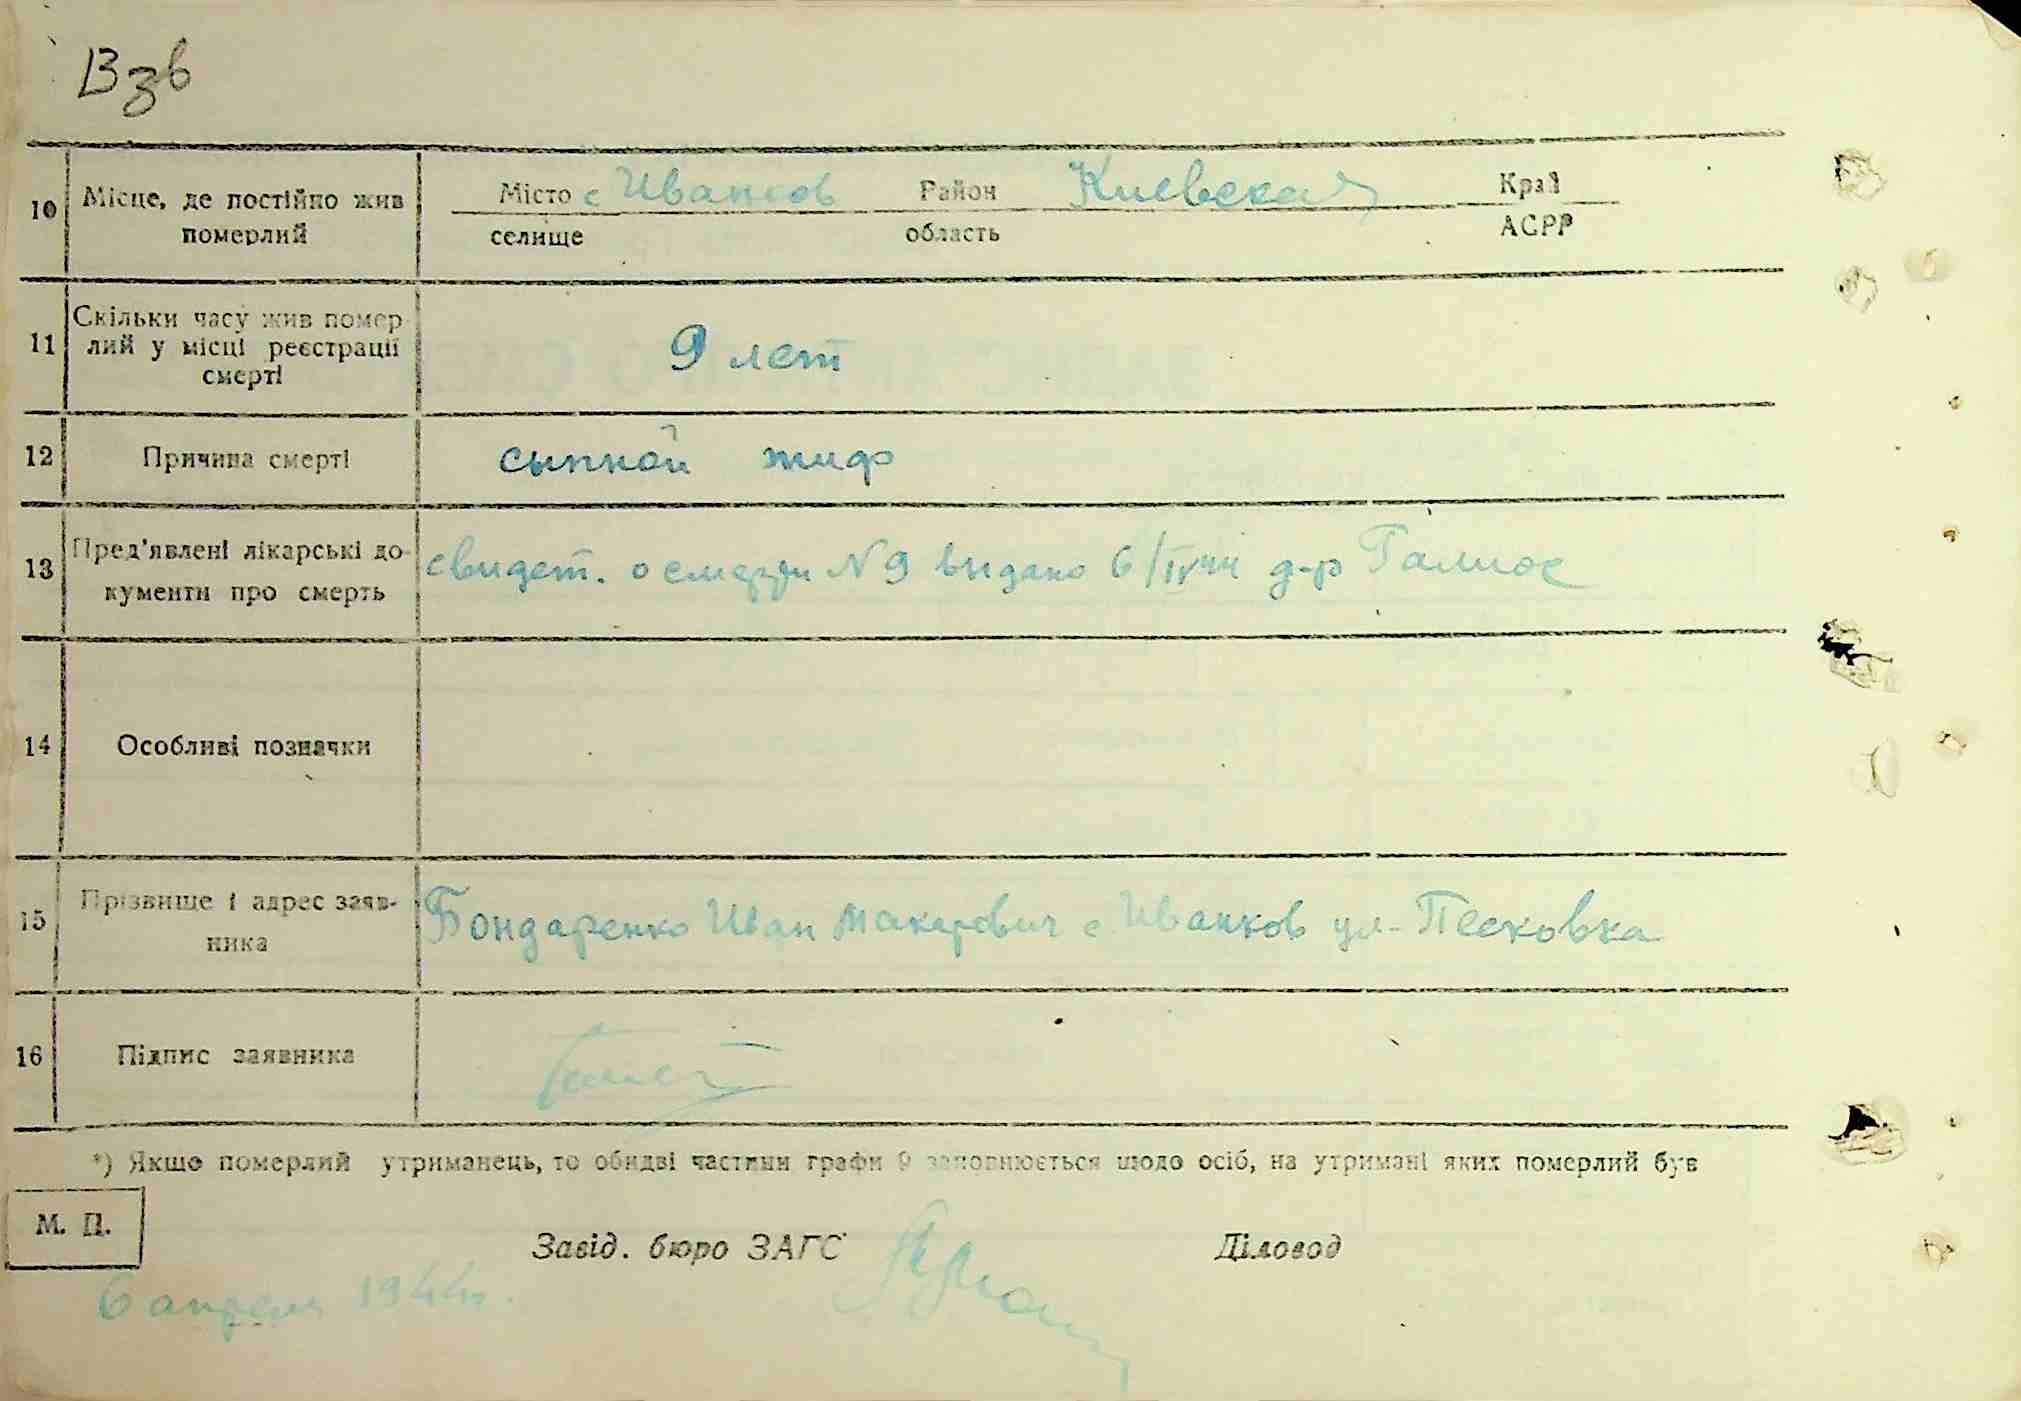 Взв
10 Місце, де постійно жив Місто с Иванков Район Киевская Край
померлий селище область АСРР
Скільки часу жив помер-
11 лий у місці реєстрації 9 лет
смерті
12 Причина смерті сыпной тиф
13 Пред'явлені лікарські до- свидет. о смерти N 9 выдано 6/IV 44 д-р
кументи про смерть
14 Особливі позначки
15 Прізвище і адрес заяв- Бондаренко Иван Макарович с. Иванков ул. Песковка
ника
16 Підпис заявника
*) Якщо померлий утриманець, то обидві частини графи 9 заповнюється щодо осіб, на утримані яких померлий був
М. П.
Завід. бюро ЗАГС Діловод
6 апреля 1944г.